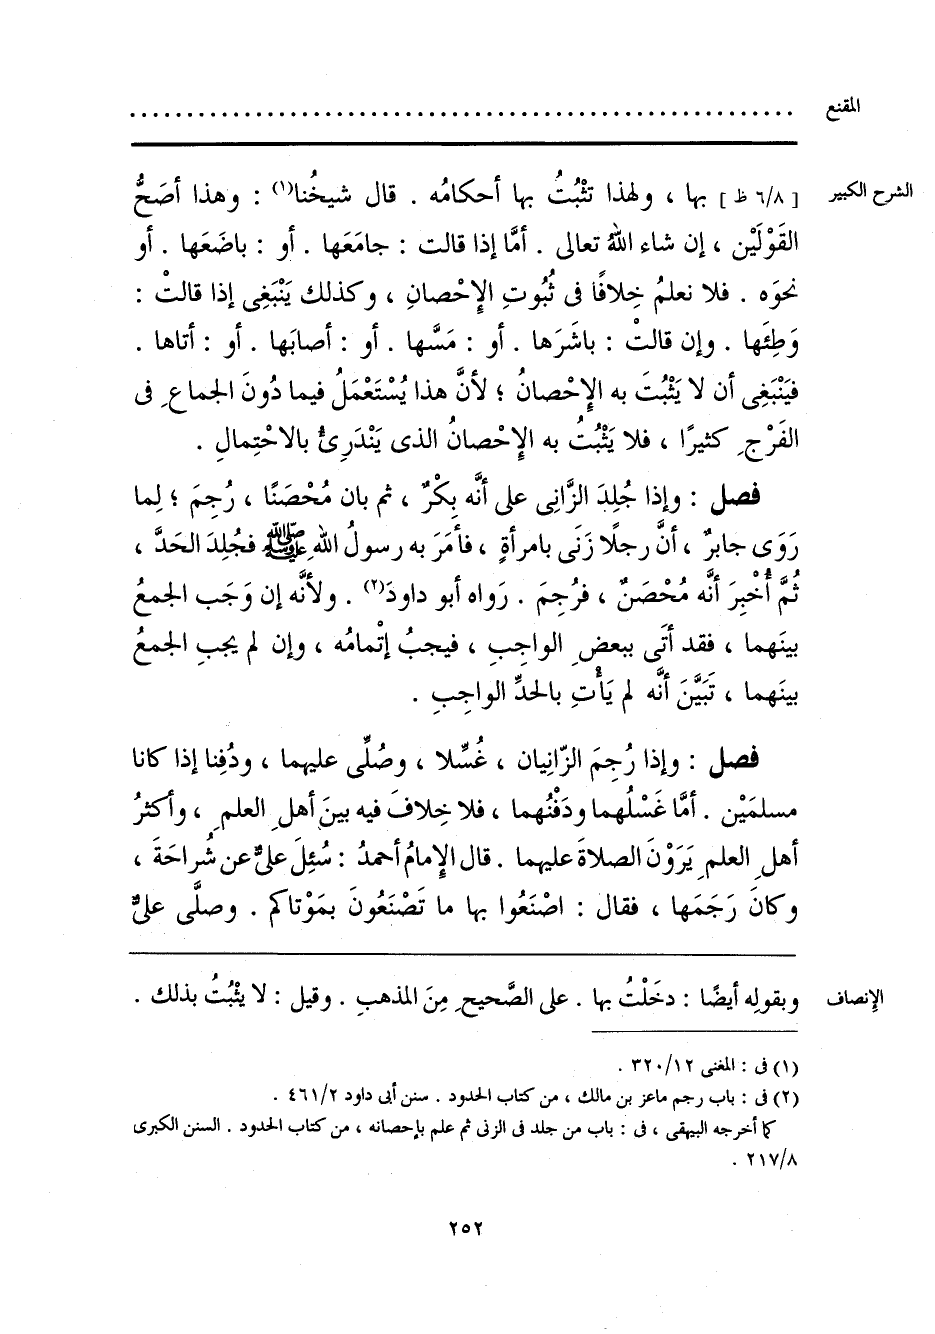 المقنع ......................................................
الشرح الكبير [ ٦/٨ ظ ] بها ، ولهذا تَثْبُتُ بها أحكامُه . قال شيخُنا(١) : وهذا أصَحُّ
القَوْلَيْن ، إن شاء اللهُ تعالى . أمَّا إذا قالت : جامَعَها . أو : باضَعَها . أو
نحوَه . فلا نعلمُ خِلافًا فى ثُبُوتِ الإِحْصانِ ، وكذلك يَنْبَغِى إذا قالتْ :
وَطِئَها . وإن قالتْ : باشَرَها . أو : مَسَّها . أو : أصابَها . أو : أتاها .
فيَنْبَغِى أن لا يَثْبُتَ به الإِحْصانُ ؛ لأنَّ هذا يُسْتَعْمَلُ فيما دُونَ الجماعِ فى
الفَرْجِ كثيرًا ، فلا يَثْبُتُ به الإِحْصانُ الذى يَنْدَرِئُ بالاحْتِمالِ .
فصل : وإذا جُلِدَ الزَّانِى على أنَّه بِكْرٌ ، ثم بان مُحْصَنًا ، رُجِمَ ؛ لِما
رَوَى جابرٌ ، أنَّ رجلًا زَنَى بامرأةٍ ، فأمَرَ به رسولُ اللهِ ﷺ فجُلِدَ الحَدَّ ،
ثُمَّ أُخْبِرَ أنَّه مُحْصَنٌ ، فرُجِمَ . رَواه أبو داودَ(٢) . ولأنَّه إن وَجَب الجمعُ
بينَهما ، فقد أتَى ببعضِ الواجِبِ ، فيجبُ إتْمامُه ، وإن لم يجبِ الجمعُ
بينَهما ، تَبَيَّنَ أنَّه لم يَأْتِ بالحدِّ الواجِبِ .
فصل : وإذا رُجِمَ الزّانِيان ، غُسِّلا ، وصُلِّى عليهما ، ودُفِنا إذا كانا
مسلمَيْن . أمَّا غَسْلُهما ودَفْنُهما ، فلا خِلافَ فيه بينَ أهلِ العلمِ ، وأكثرُ
أهلِ العلمِ يَرَوْنَ الصلاةَ عليهما . قال الإِمامُ أحمدُ : سُئِلَ علىٌّ عن شُراحَةَ ،
وكانَ رَجَمَها ، فقال : اصْنَعُوا بها ما تَصْنَعُونَ بمَوْتاكم . وصلَّى علىٌّ
الإنصاف وبقولِه أيضًا : دخَلْتُ بها . على الصَّحيحِ مِنَ المذهبِ . وقيل : لا يثْبُتُ بذلك .
(١) فى : المغنى ٣٢٠/١٢ .
(٢) فى : باب رجم ماعز بن مالك ، من كتاب الحدود . سنن أبى داود ٤٦١/٢ .
كما أخرجه البيهقى ، فى : باب من جلد فى الزنى ثم علم بإحصانه ، من كتاب الحدود . السنن الكبرى
٢١٧/٨ .
٢٥٢